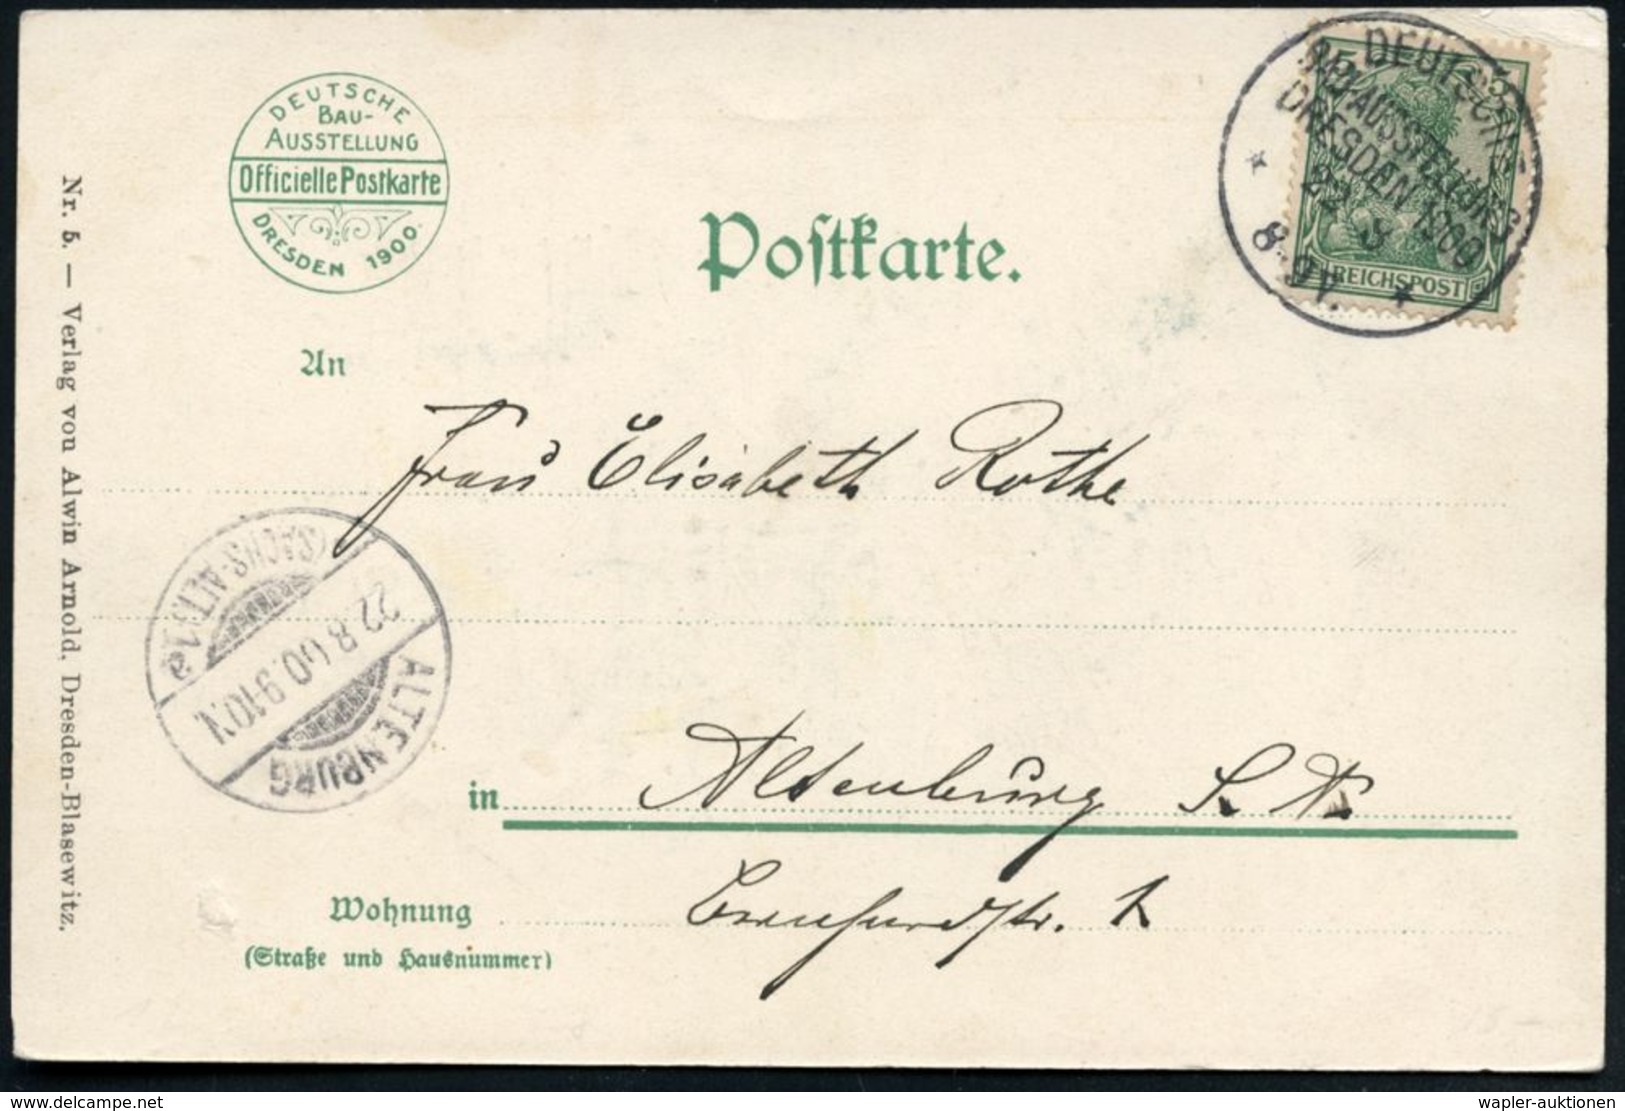 DEUTSCHE
BAU-
AUSSTELLUNG
Officielle Postkarte
DRESDEN 1900.
Postkarte.
DEUTSCHE
BAUAUSSTELLUNG
DRESDEN 1900
22 8
8-9V.
REICHSPOST
Nr. 5. — Verlag von Alwin Arnold, Dresden-Blasewitz.
An
Frau Elisabeth Rothe
ALTENBURG
(SACHS-ALT.) 1a
22.8.00.9-10N.
in Altenburg S. A.
Wohnung
(Straße und Hausnummer)
delcampe.net
wapler-auktionen